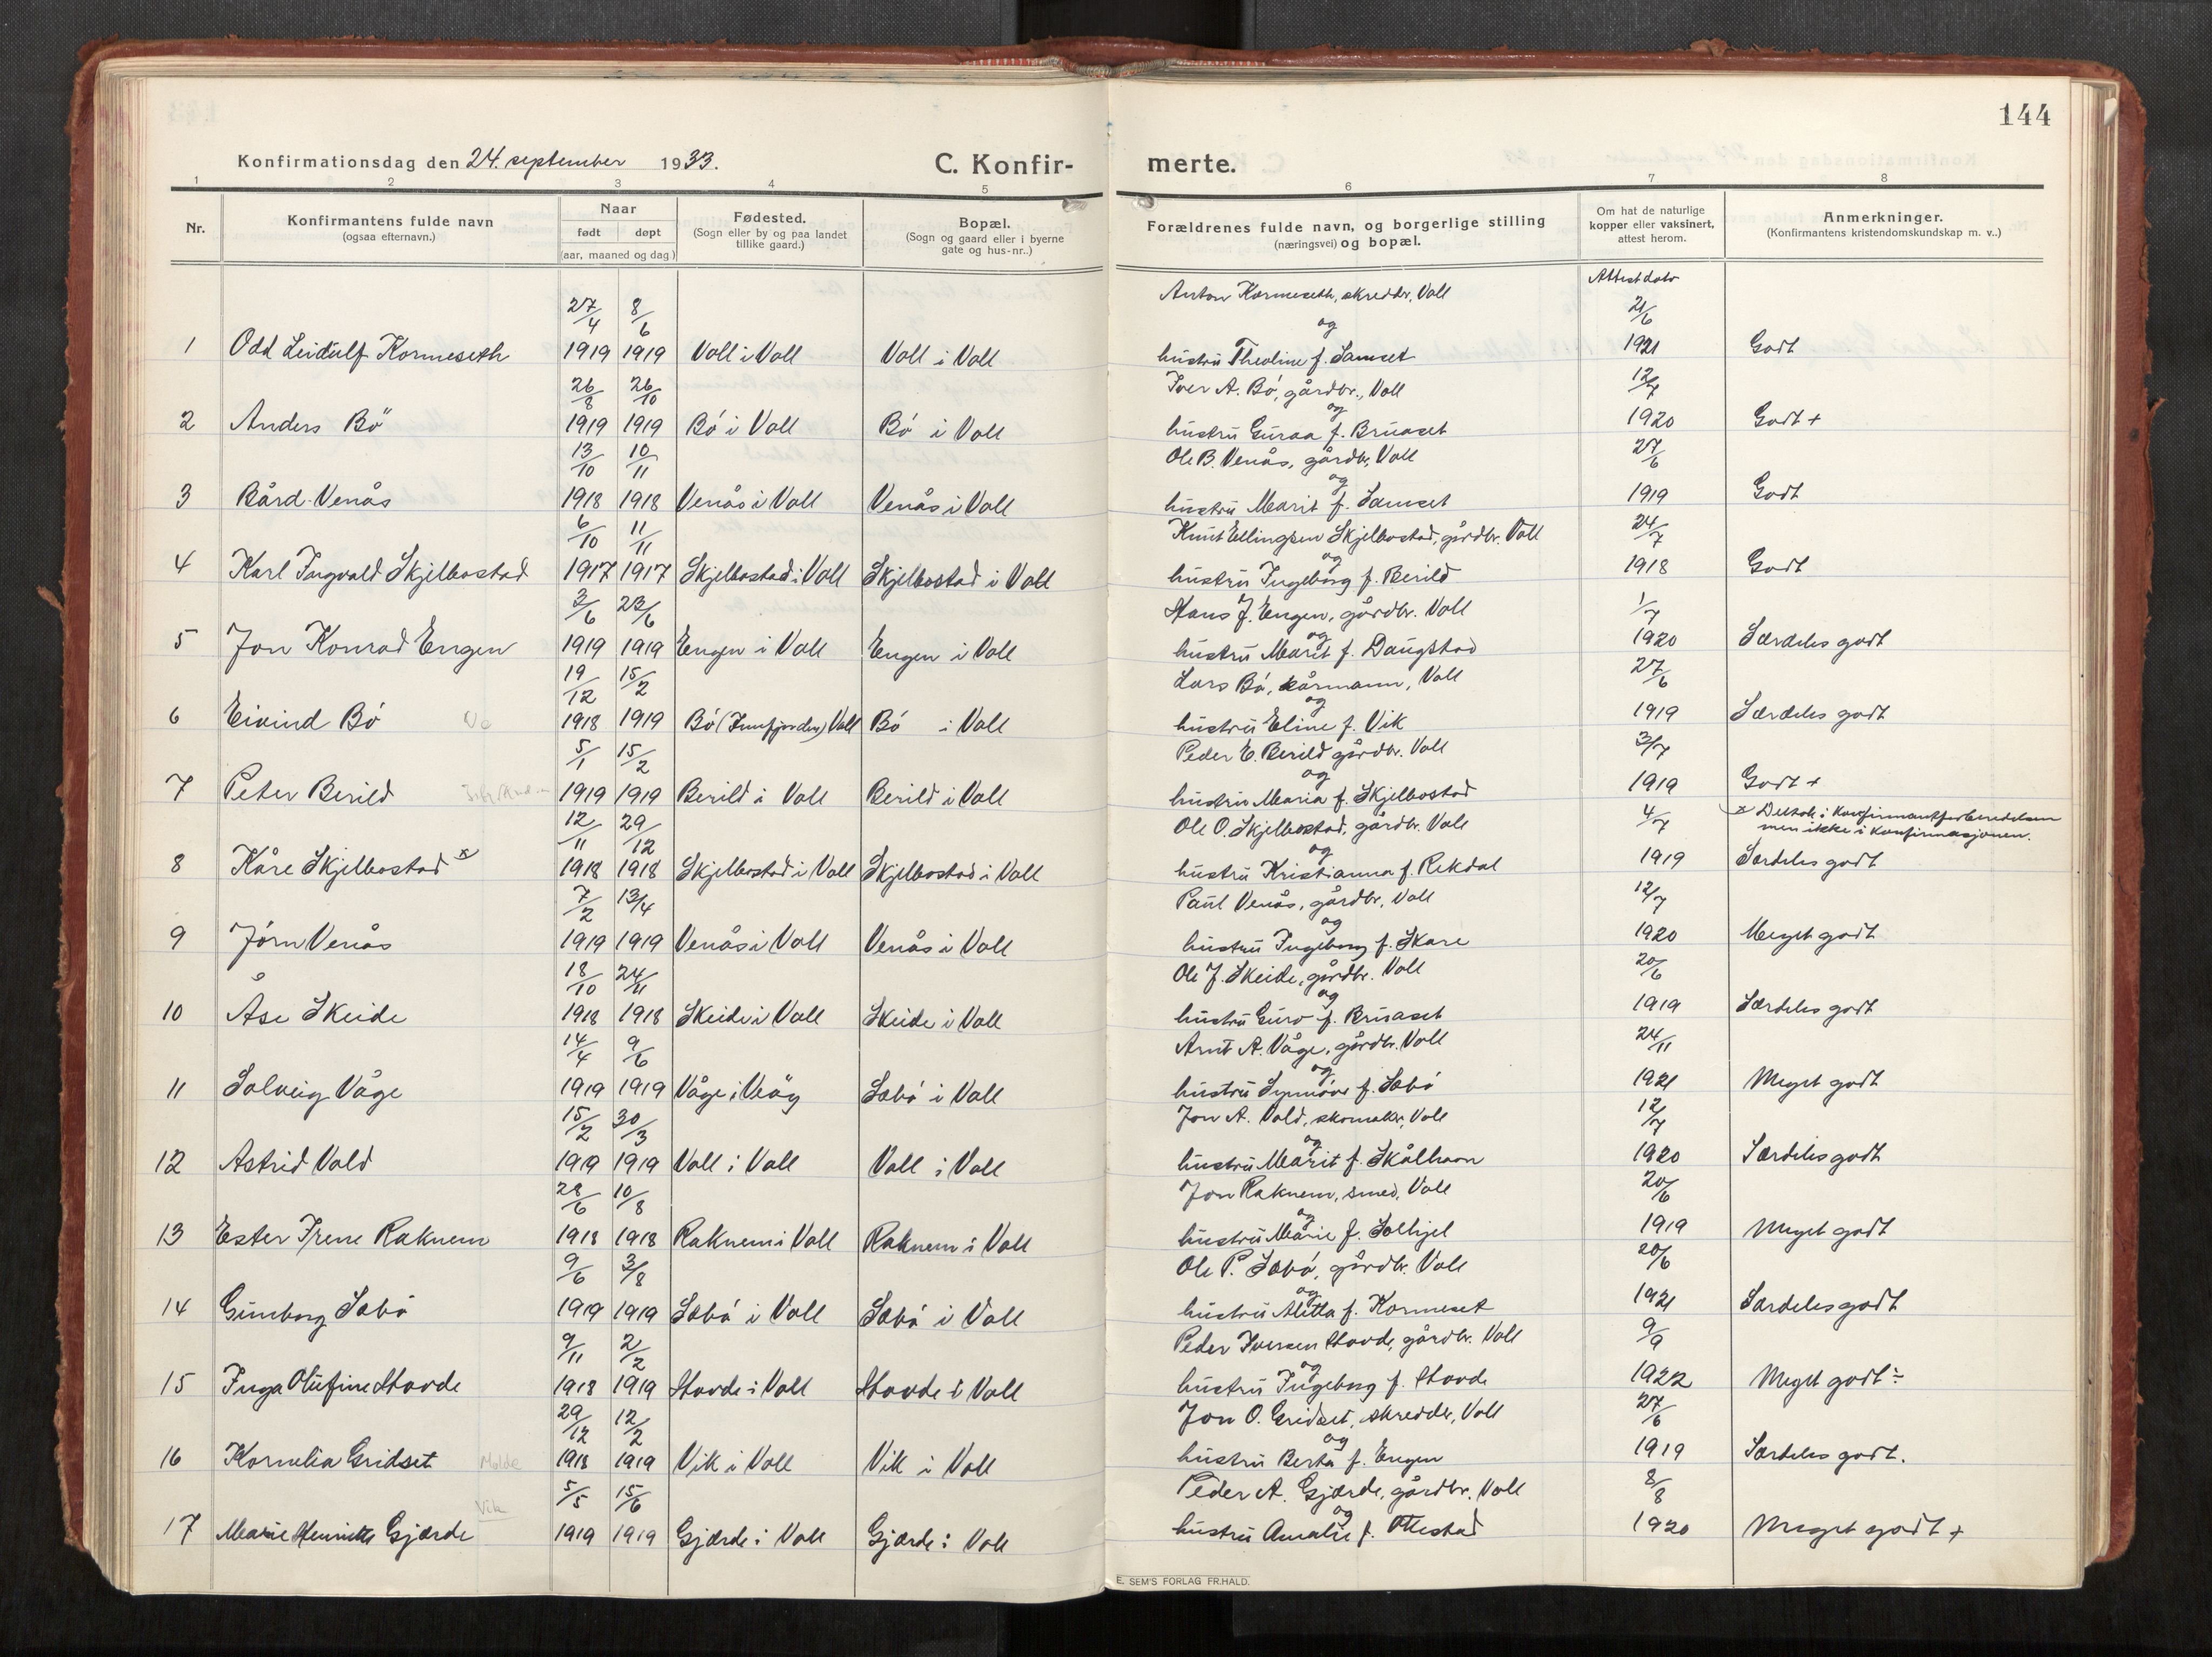 144
Konfirmationsdag den 24. september 1933. C. Konfir- merte.
1 2 3 4 5 6 7 8
Nr. Konfirmantens fulde navn (ogsaa efternavn.) Naar født døpt (aar, maaned og dag.) Fødested. (Sogn eller by og paa landet tillike gaard.) Bopæl. (Sogn og gaard eller i byerne gate og hus-nr..) Forældrenes fulde navn, og borgerlige stilling (næringsvei) og bopæl. Om hat de naturlige kopper eller vaksinert, attest herom. Anmerkninger. (Konfirmantens kristendomskundskap m. v..)
Attest dato
27/4 8/6 Anton Kormeseth, skredder, Voll 21/6
1 Odd Leidulf Kormeseth 1919 1919 Voll i Voll Voll i Voll og hustru Theoline f. Samset 1921 Godt
26/8 26/10 Iver A. Bö, gårdbr., Voll 12/7
2 Anders Bö 1919 1919 Bö i Voll Bö i Voll og hustru Guraa f. Bruaset 1920 Godt +
13/10 10/11 Ole B. Venås, gårdbr, Voll 27/6
3 Bård Venås 1918 1918 Venås i Voll Venås i Voll og hustru Marit f. Samset 1919 Godt
6/10 11/11 Knut Ellingsen Skjelbostad, gårdbr. Voll 24/7
4 Karl Ingvald Skjelbostad 1917 1917 Skjelbostad i Voll Skjelbostad i Voll og hustru Ingeborg f. Berild 1918 Godt
3/6 23/6 Hans J. Engen, gårdbr. Voll 1/7
5 Jon Konrad Engen 1919 1919 Engen i Voll Engen i Voll og hustru Marit f. Daugstad 1920 Særdeles godt
19/12 15/2 Lars Bö, kårmann, Voll 27/6
6 Eivind Bö 1918 1919 Bö (Innfjorden) Voll Bö i Voll og hustru Eline f. Vik 1919 Særdeles godt
5/1 15/2 Peder E. Berild gårdbr. Voll 3/7
7 Peter Berild 1919 1919 Berild i Voll Berild i Voll og hustru Maria f. Skjelbostad 1919 Godt +
12/11 29/12 Ole O. Skjelbostad, gårdbr. Voll 4/7 x Deltok i konfirmantforberedelsen men ikke i konfirmasjonen.
8 Kåre Skjelbostad x 1918 1918 Skjelbostad i Voll Skjelbostad i Voll og hustru Kristianna f. Rekdal 1919 Særdeles godt
7/2 13/4 Paul Venås, gårdbr, Voll 12/7
9 Jörn Venås 1919 1919 Venås i Voll Venås i Voll og hustru Ingeborg f. Skare 1920 Meget godt
18/10 24/11 Ole J. Skeide, gårdbr. Voll 20/6
10 Åse Skeide 1918 1918 Skeide i Voll Skeide i Voll og hustru Guro f. Bruaset 1919 Særdeles godt
14/4 9/6 Arnt A. Våge, gårdbr. Voll 24/11
11 Solveig Våge 1919 1919 Våge i Veöy Sæbö i Voll og hustru Synnöve f. Sæbö 1921 Meget godt
15/2 30/3 Jon A. Vold, skomaker, Voll 12/7
12 Astrid Vold 1919 1919 Voll i Voll Voll i Voll og hustru Marit f. Skålhavn 1920 Særdeles godt
28/6 10/8 Jon Raknem, smed, Voll 20/6
13 Ester Irene Raknem 1918 1918 Raknem i Voll Raknem i Voll og hustru Marie f. Solhjel 1919 Meget godt
9/6 3/8 Ole P. Sæbö, gårdbr. Voll 20/6
14 Gunborg Sæbö 1919 1919 Sæbö i Voll Sæbö i Voll og hustru Alitta f. Kormeset 1921 Særdeles godt
9/11 2/2 Peder Iversen Stovde, gårdbr. Voll 9/9
15 Inga Olufine Stovde 1918 1919 Stovde i Voll Stovde i Voll og hustru Ingeborg f. Stovde 1922 Meget godt ÷
29/12 12/2 Jon O. Gridset, skredder, Voll 27/6
16 Kornelia Gridset Molde 1918 1919 Vik i Voll Vik i Voll og hustru Berta f. Engen 1919 Særdeles godt.
Vik 5/5 15/6 Peder A. Gjærde, gårdbr. Voll 8/8
17 Marie Henrikke Gjærde 1919 1919 Gjærde i Voll Gjærde i Voll og hustru Amalie f. Ottestad 1920 Meget godt +
E. SEM'S FORLAG FR.HALD.